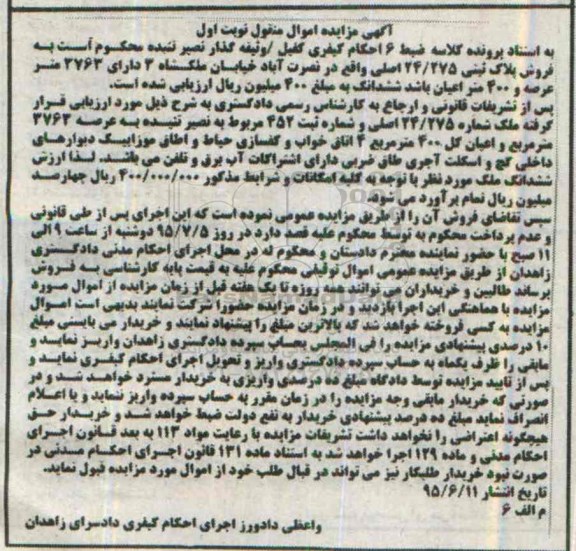 آگهی مزایده اموال منقول نوبت اول
به استناد پرونده کلاسه ضبط ۶ احکام کیفری کفیل /وثیقه گذار نصیر تنیده محکوم است به
فروش پلاک ثبتی ۲۴/۲۷۵ اصلی واقع در نصرت آباد خیابان ملکشاه ۳ دارای ۳۷۶۳ متر
عرصه و ۴۰۰ متر اعیان باشد ششدانگ به مبلغ ۴۰۰ میلیون ریال ارزیابی شده است.
پس از تشریفات قانونی و ارجاع به کارشناس رسمی دادگستری به شرح ذیل مورد ارزیابی قرار
گرفته ملک شماره ۲۴/۲۷۵ اصلی و شماره ثبت ۴۵۲ مربوط به نصیر تنیده به عرصه ۳۷۶۳
مترمربع و اعیان کل ۴۰۰ مترمربع ۴ اتاق خواب و کفسازی حیاط و اطاق موزاییک دیوارهای
داخلی گچ و اسکلت آجری طاق ضربی دارای اشتراکات آب برق و تلفن می باشد. لذا ارزش
ششدانگ ملک مورد نظر با توجه به کلیه امکانات و شرایط مذکور ۴۰۰/۰۰۰/۰۰۰ ریال چهارصد
میلیون ریال تمام برآورد می شود.
سپس تقاضای فروش آن را از طریق مزایده عمومی نموده است که این اجرای پس از طی قانونی
و عدم پرداخت محکوم به توسط محکوم علیه قصد دارد در روز ۹۵/۷/۵ دوشنبه از ساعت ۹ الی
۱۱ صبح با حضور نماینده محترم دادستان و محکوم له در محل اجرای احکام مدنی دادگستری
زاهدان از طریق مزایده عمومی اموال توقیفی محکوم علیه به قیمت پایه کارشناسی به فروش
برساند طالبین و خریداران می توانند همه روزه تا یک هفته قبل از زمان مزایده از اموال مورد
مزایده با هماهنگی این اجرا بازدید و در زمان مزایده حضورا شرکت نمایند بدیهی است اموال
مزایده به کسی فروخته خواهد شد که بالاترین مبلغ را پیشنهاد نمایند و خریدار می بایستی مبلغ
۱۰ درصدی پیشنهادی مزایده را فی المجلس بحساب سپرده دادگستری زاهدان واریز نماید و
مابقی را ظرف یکماه به حساب سپرده دادگستری واریز و تحویل اجرای احکام کیفری نماید و
پس از تایید مزایده توسط دادگاه مبلغ ده درصدی واریزی به خریدار مسترد خواهد شد و در
صورتی که خریدار مابقی وجه مزایده را در زمان مقرر به حساب سپرده واریز ننماید و یا اعلام
انصراف نماید مبلغ ده درصد پیشنهادی خریدار به نفع دولت ضبط خواهد شد و خریدار حق
هیچگونه اعتراضی را نخواهد داشت تشریفات مزایده با رعایت مواد ۱۱۳ به بعد قانون اجرای
احکام مدنی و ماده ۱۲۹ اجرا خواهد شد به استناد ماده ۱۳۱ قانون اجرای احکام مدنی در
صورت نبود خریدار طلبکار نیز می تواند در قبال طلب خود از اموال مورد مزایده قبول نماید.
تاریخ انتشار ۹۵/۶/۱۱
م الف ۶
واعظی دادورز اجرای احکام کیفری دادسرای زاهدان